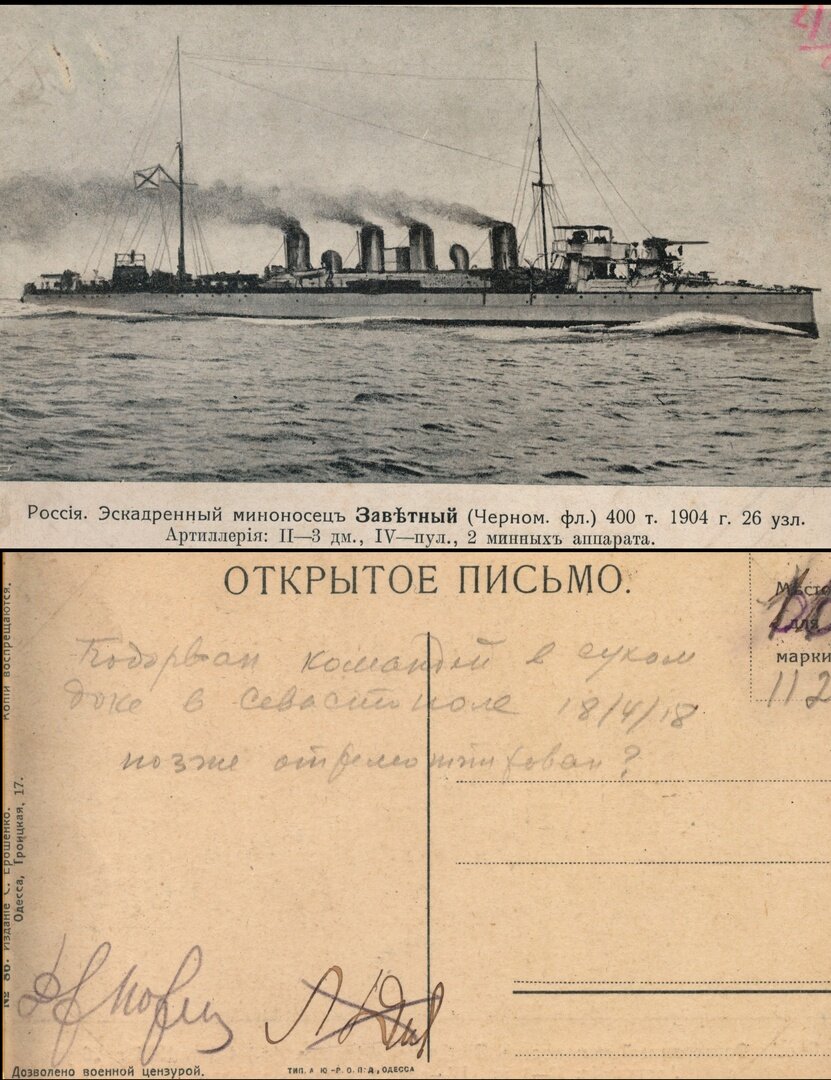 Россія. Эскадренный миноносецъ Завѣтный (Черном. фл.) 400 т. 1904 г. 26 узл.
Артиллерія: II—3 дм., IV—пул., 2 минныхъ аппарата.
ОТКРЫТОЕ ПИСЬМО.
Мѣсто
для
марки
112
Подорван командой в сухом
доке в Севастополе 18/4/18
позже отремонтирован?
Копіи воспрещаются.
№ 86. Изданіе С. Ерошенко.
Одесса, Троицкая, 17.
Дозволено военной цензурой.
ТИП. А Ю.-Р. О. П. Д., ОДЕССА